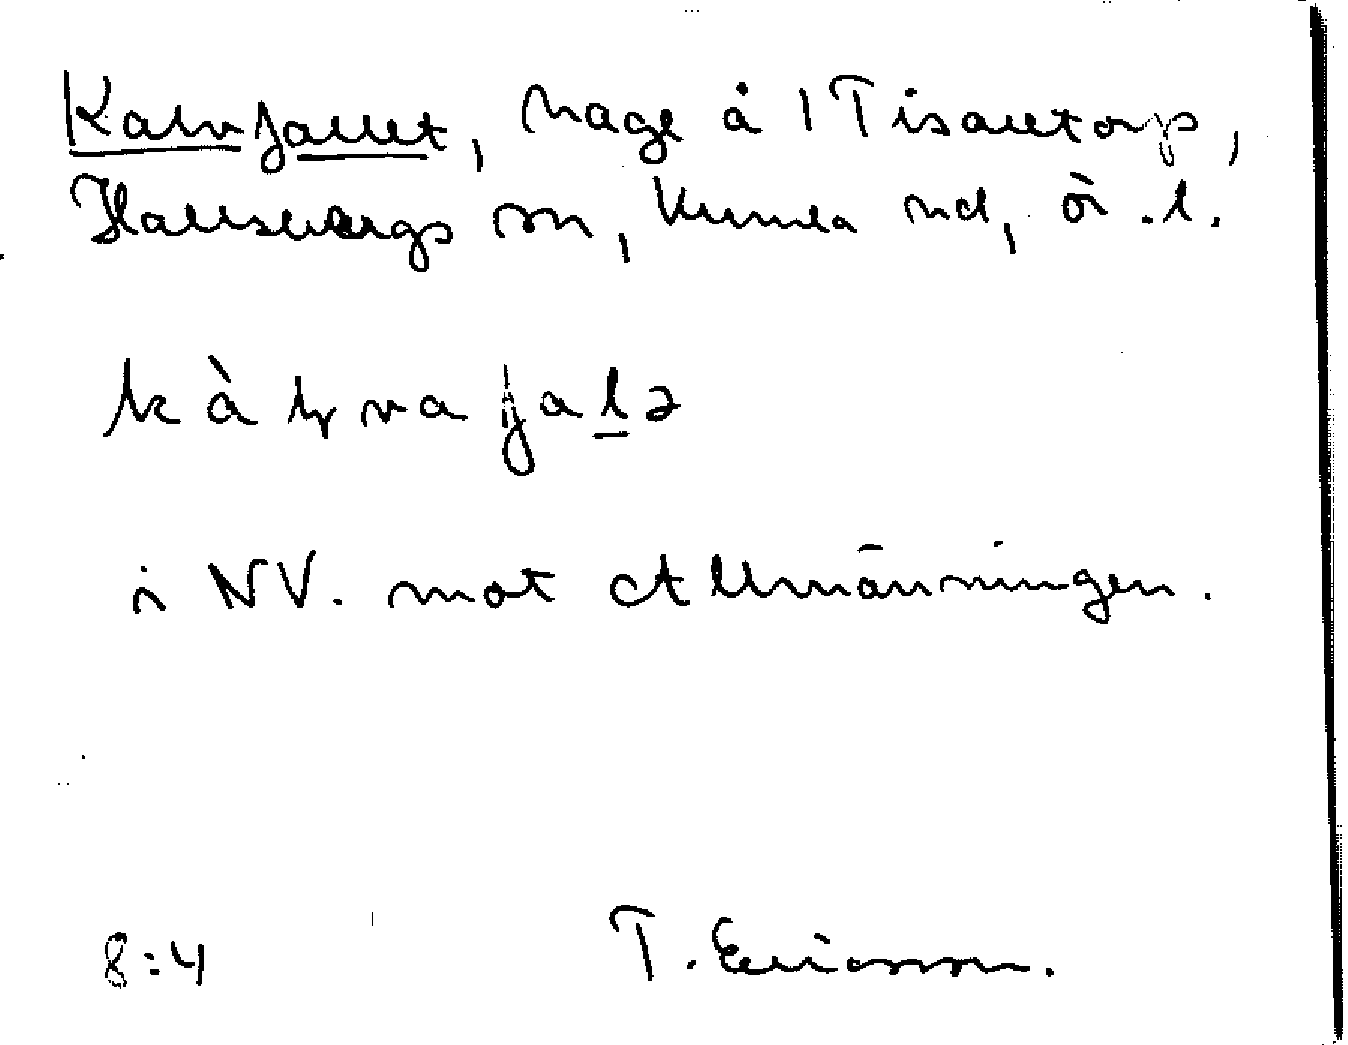 Kalvgallet, hage å 1 Tisaretorp,
Hallsbergs sn, Kumla hd, ör. l.
i NV. mot Allmänningen.
8:4 T. Ericsson.